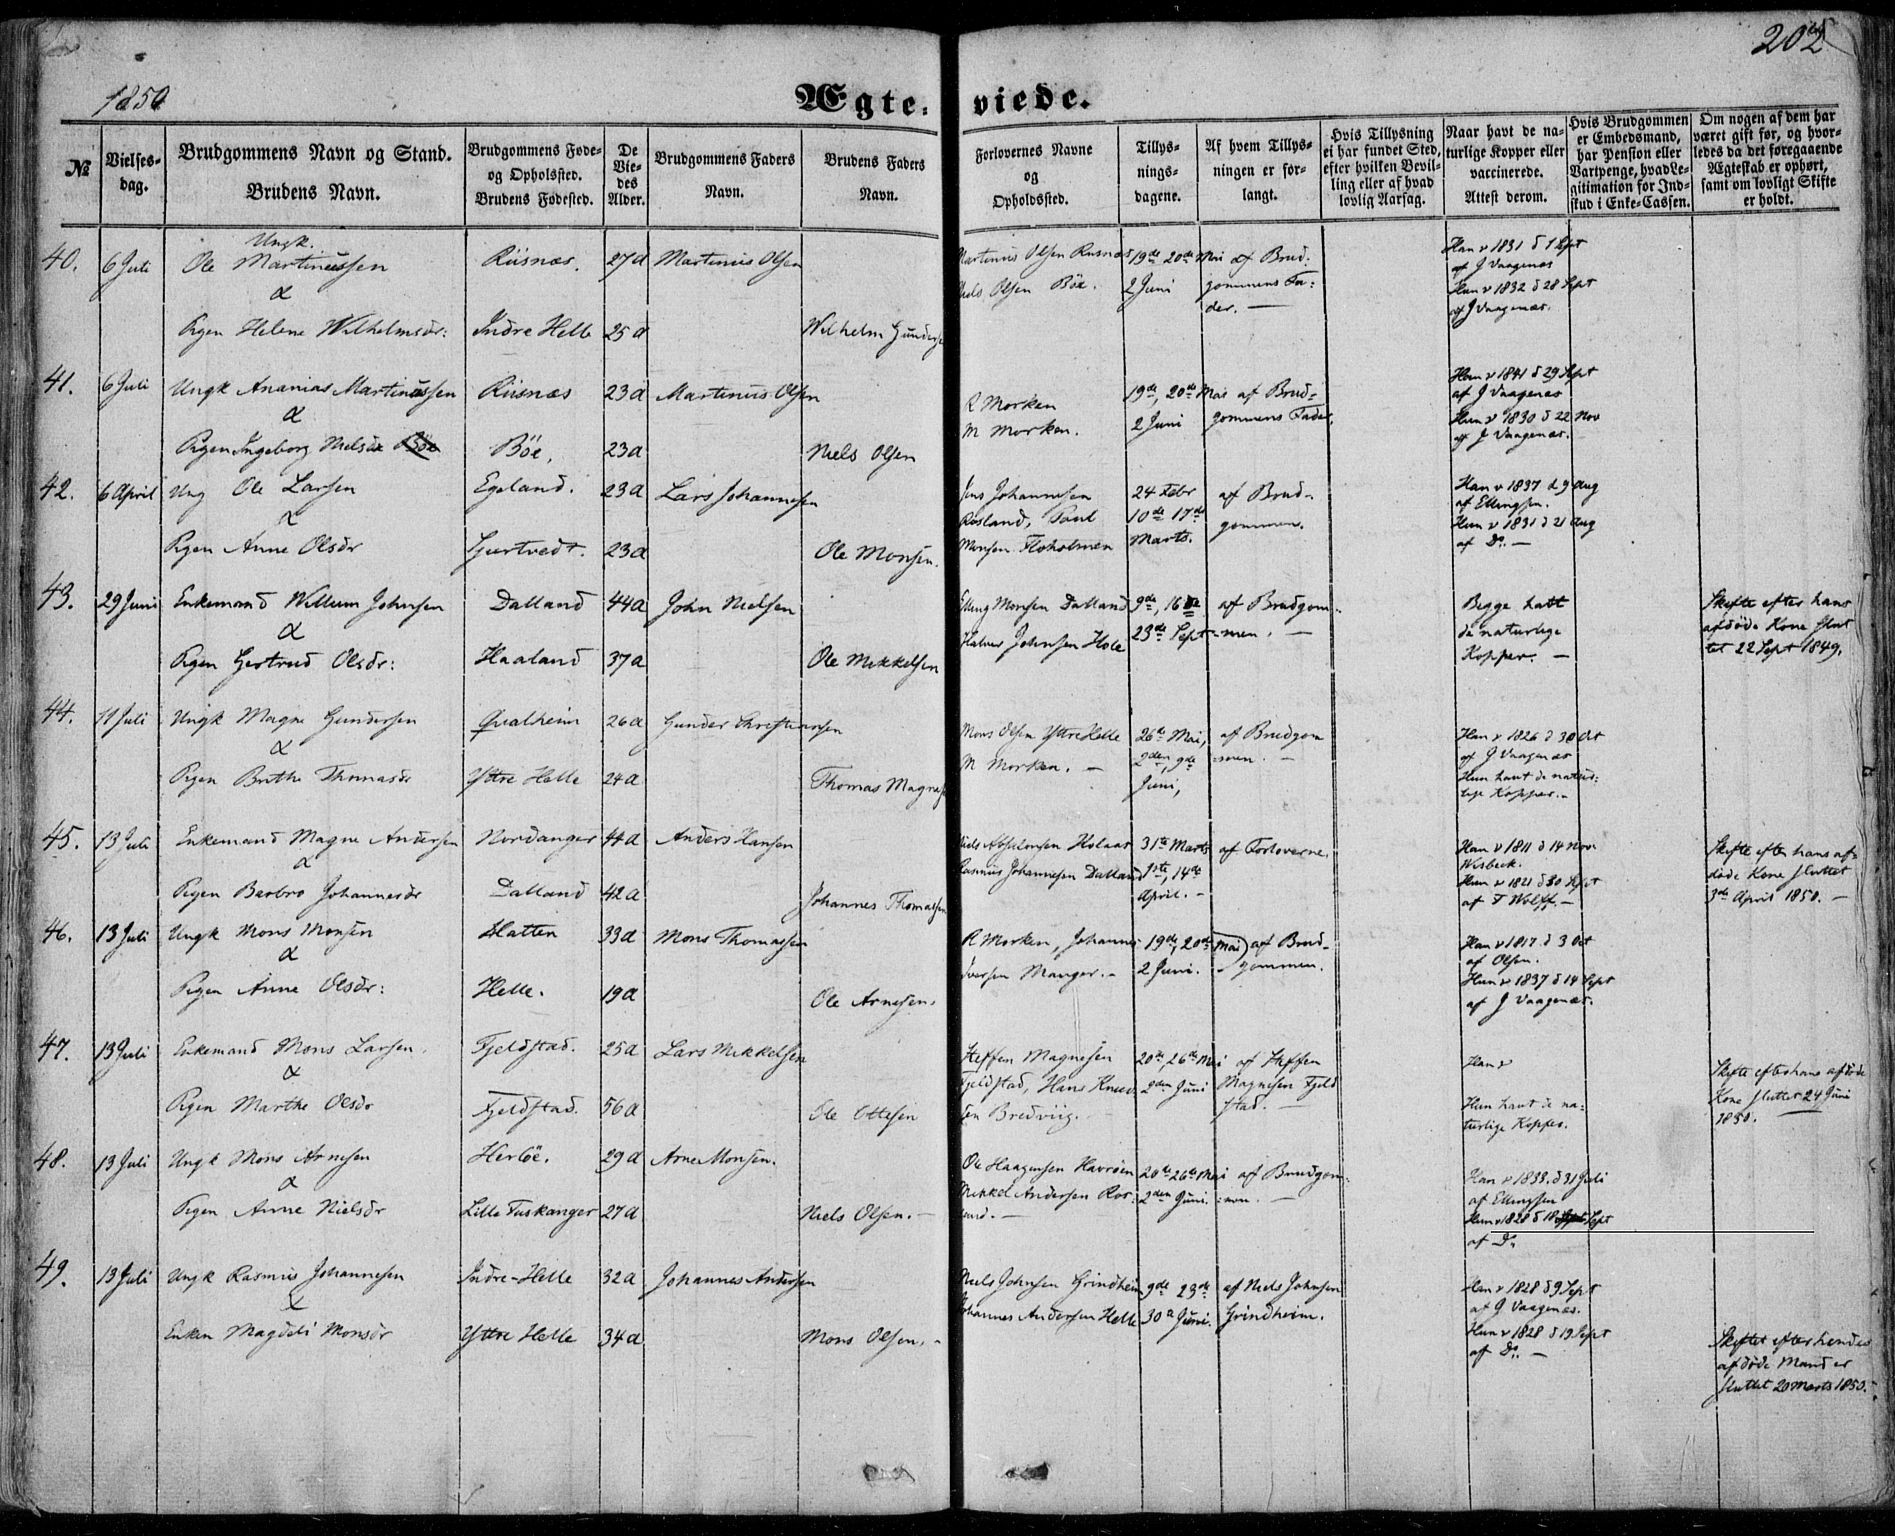 1850
Ægte.
viede.
202
№
Vielses-
dag.
Brudgommens Navn og Stand.
Brudens Navn.
Brudgommens Føde-
og Opholssted.
Brudens Fødested.
De
Vie-
des
Alder.
Brudgommens Faders
Navn.
Brudens Faders
Navn.
Forlovernes Navne
og
Opholdssted.
Tillys-
nings-
dagene.
Af hvem Tillys-
ningen er for-
langt.
Hvis Tillysning
ei har fundet Sted,
efter hvilken Bevil-
ling eller af hvad
lovlig Aarsag.
Naar havt de na-
turlige Kopper eller
vaccinerede.
Attest derom.
Hvis Brudgommen
er Embedsmand,
har Pension eller
Vartpenge, hvad Le-
gitimation for Ind-
skud i Enke-Cassen.
Om nogen af dem har
været gift før, og hvor-
ledes da det foregaaende
Ægteskab er ophørt,
samt om lovligt Skifte
er holdt.
40. 6 Juli Ole Ungk. Martinussen Riisnæs. 27a Martinus Olsen
&
Pigen Helene Wilhelmsdr: Indre Helle 25a Wilhelm Gunders
Martinus Olsen Riisnæs 19de 20de Mai af Brud-
Niels Olsen Böe. 2 Juni gommens Fa-
der. —
Han v 1831 d 1 Sept
af J Vaagenæs
Hun v 1832 d 28 Sept
af J Vaagenæs.
41. 6 Juli Ungk Ananias Martinussen Riisnæs 23a Martinus Olsen
&
Pigen Ingeborg Nielsdr Böe, 23a Niels Olsen
R Morken 19de, 20de Mai af Brud-
M Morken. 2 Juni gommens Fader.
Han v 1841 d 29 Sept
af J Vaagenæs
Hun v 1830 d 22 Nov
af J Vaagenæs.
42. 6 April Ung Ole Larsen Egeland. 23a Lars Johannesen
&
Pigen Anne Olsdr Gjertvedt. 23a Ole Monsen.
Jens Johannesen 24 Febr af Brud-
Rosland, Poul 10de 17de gommen.
Monsen Floholmen Marts.
Han v 1837 d 9 Aug
af Ellingsen.
Hun v 1831 d 21 Aug
af Do. —
43. 29 Juni Enkemand Willum Johnsen Dalland 44a John Nielsen
&
Pigen Gertrud Olsdr: Haaland 37a Ole Mikkelsen
Elling Monsen Dalland 9de, 16de af Brudgom-
Halvor Johnsen Hole 23de Sept -men. —
Begge havt
de naturlige
Kopper. —
Skifte efter hans
afdöde Kone slut
tet 22 Sept 1849.
44. 11 Juli Ungk Magne Gundersen Qvalheim 26a Gunder Christensen
&
Pigen Brithe Thomasdr Yttre Helle 24a Thomas Magnes
Mons Olsen Yttre Helle 26de Mai, af Brudgom
M Morken. — 2den, 9de -men. —
Juni,
Han v 1826 d 30 Oct
af J Vaagenæs
Hun havt de natur-
lige Kopper.
45. 13 Juli Enkemand Magne Andersen Nordanger 44a Anders Hansen
&
Pigen Barbro Johannesdr Dalland 42a Johannes Thomassen
Niels Absalonsen Holaas 31te Marts af Forloverne.
Rasmus Johannesen Dalland 1ste, 14de
April. -
Han v 1811 d 14 Nov
Wisbeck.
Hun v 1821 d 30 Sept
af F Wolff. —
Skifte efter hans af-
döde Kone sluttet
3de April 1850. —
46. 13 Juli Ungk Mons Monsen Hatten 33a Mons Thomassen
&
Pigen Anne Olsdr: Helle. 19a Ole Arnesen.
R Morken, Johannes 19de, 20de Mai af Brud-
Iversen Manger. - 2 Juni. - gommen.
Han v 1817 d 3 Oct
af Olsen.
Hun v 1837 d 14 Sept
af J Vaagenæs.
47. 13 Juli Enkemand Mons Larsen. Fjeldstad. 25a Lars Mikkelsen
&
Pigen Marthe Olsdr Fjeldstad. 56a Ole Ottesen
Steffen Magnesen 20de, 26de Mai af Steffen
Fjeldstad, Hans Knud 2den Juni Magnesen Fjeld
sen Bredviig. stad. —
Han v
Hun havt de na-
turlige Kopper.
Skifte efter hans afdöde
Kone sluttet 24 Juni
1850.
48. 13 Juli Ungk Mons Arnesen Herlöe. 29a Arne Monsen.
&
Pigen Anne Nielsdr Lille Fuskanger 27a Niels Olsen. —
Ole Haagensen Havröen 20de 26de Mai af Brudgom-
Mikkel Andersen Ros- 2den Juni. -men. —
land. —
Han v 1833. d 31 Juli
af Ellingsen
Hun v 1828 d 18 Sept
af Do
49. 13 Juli Ungk Rasmus Johannesen Indre-Helle 32a Johannes Andersen
&
Enken Magdeli Monsdr Yttre Helle 34a Mons Olsen. -
Niels Johnsen Grindheim 9de 23de af Niels Johnsen
Johannes Andersen Helle 30 Juni. Grindheim.
Han v 1828 d 9 Sept
af J Vaagenæs.
Hun v 1828 d 19 Sept
af Do. —
Skiftet efter hendes
afdöde Mand er
sluttet 20 Marts 1850.